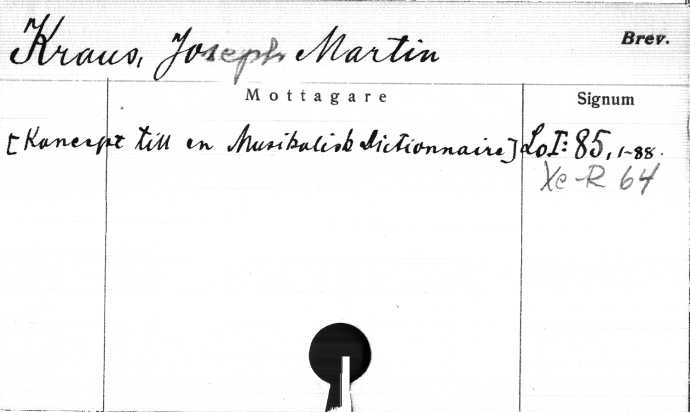 Kraus, Joseph Martin
Brev.
Mottagare
Signum
[Koncept till en Musikalisk Dictionnaire]
LoI: 85, 1-88.
Xe-R 64